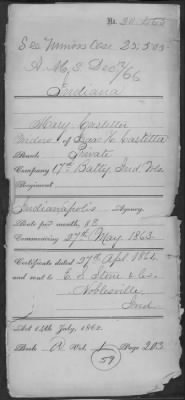 No. 
See Minors Case 
A.M.S. Dec /66
Indiana
Mary Castetter
Widow of Isaac H. Castetter
Rank, Private
Company 17th Batty Ind Vols
Regiment
Indianapolis Agency.
Rate per month, $8
Commencing 27th May 1863
Certificate dated 27th Apl 1864
and sent to E. S. Stone & Co.
Noblesville
Ind.
Act 14th July, 1862.
Book A Vol. 1 Page 203.
59